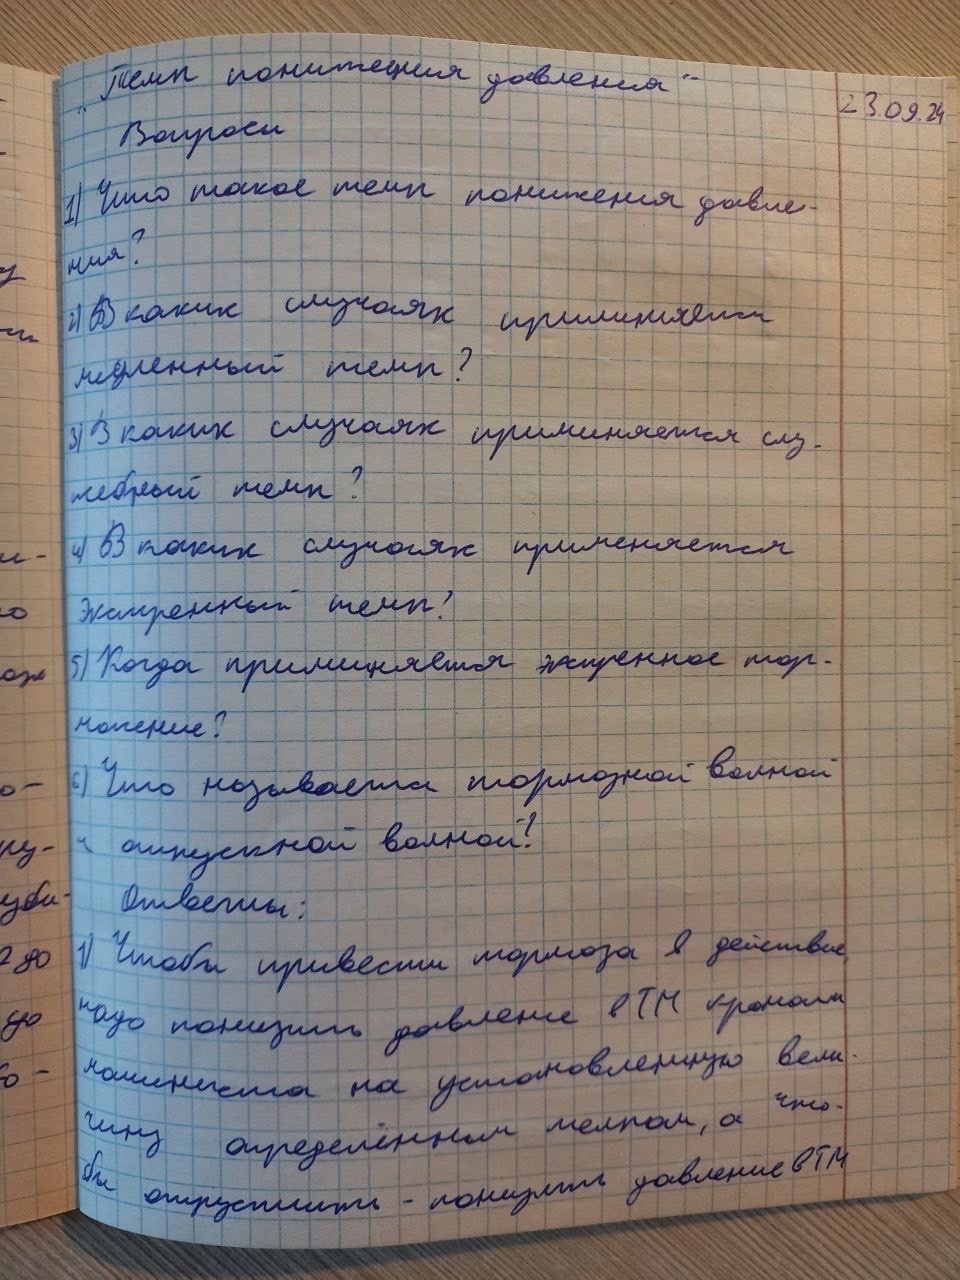 "Темп понижения давления"
23.09.24
Вопросы
1) Что такое темп понижения давле-
ния?
2) В каких случаях применяется
медленный темп?
3) В каких случаях применяется слу-
жебный темп?
4) В каких случаях применяется
экстренный темп?
5) Когда применяется экстренное тор-
можение?
6) Что называется тормозной волной
и отпускной волной?
Ответы:
1) Чтобы привести тормоза в действие
надо понизить давление в ТМ краном
машиниста на установленную вели-
чину определённым темпом, а что-
бы отпустить - понизить давление в ТМ